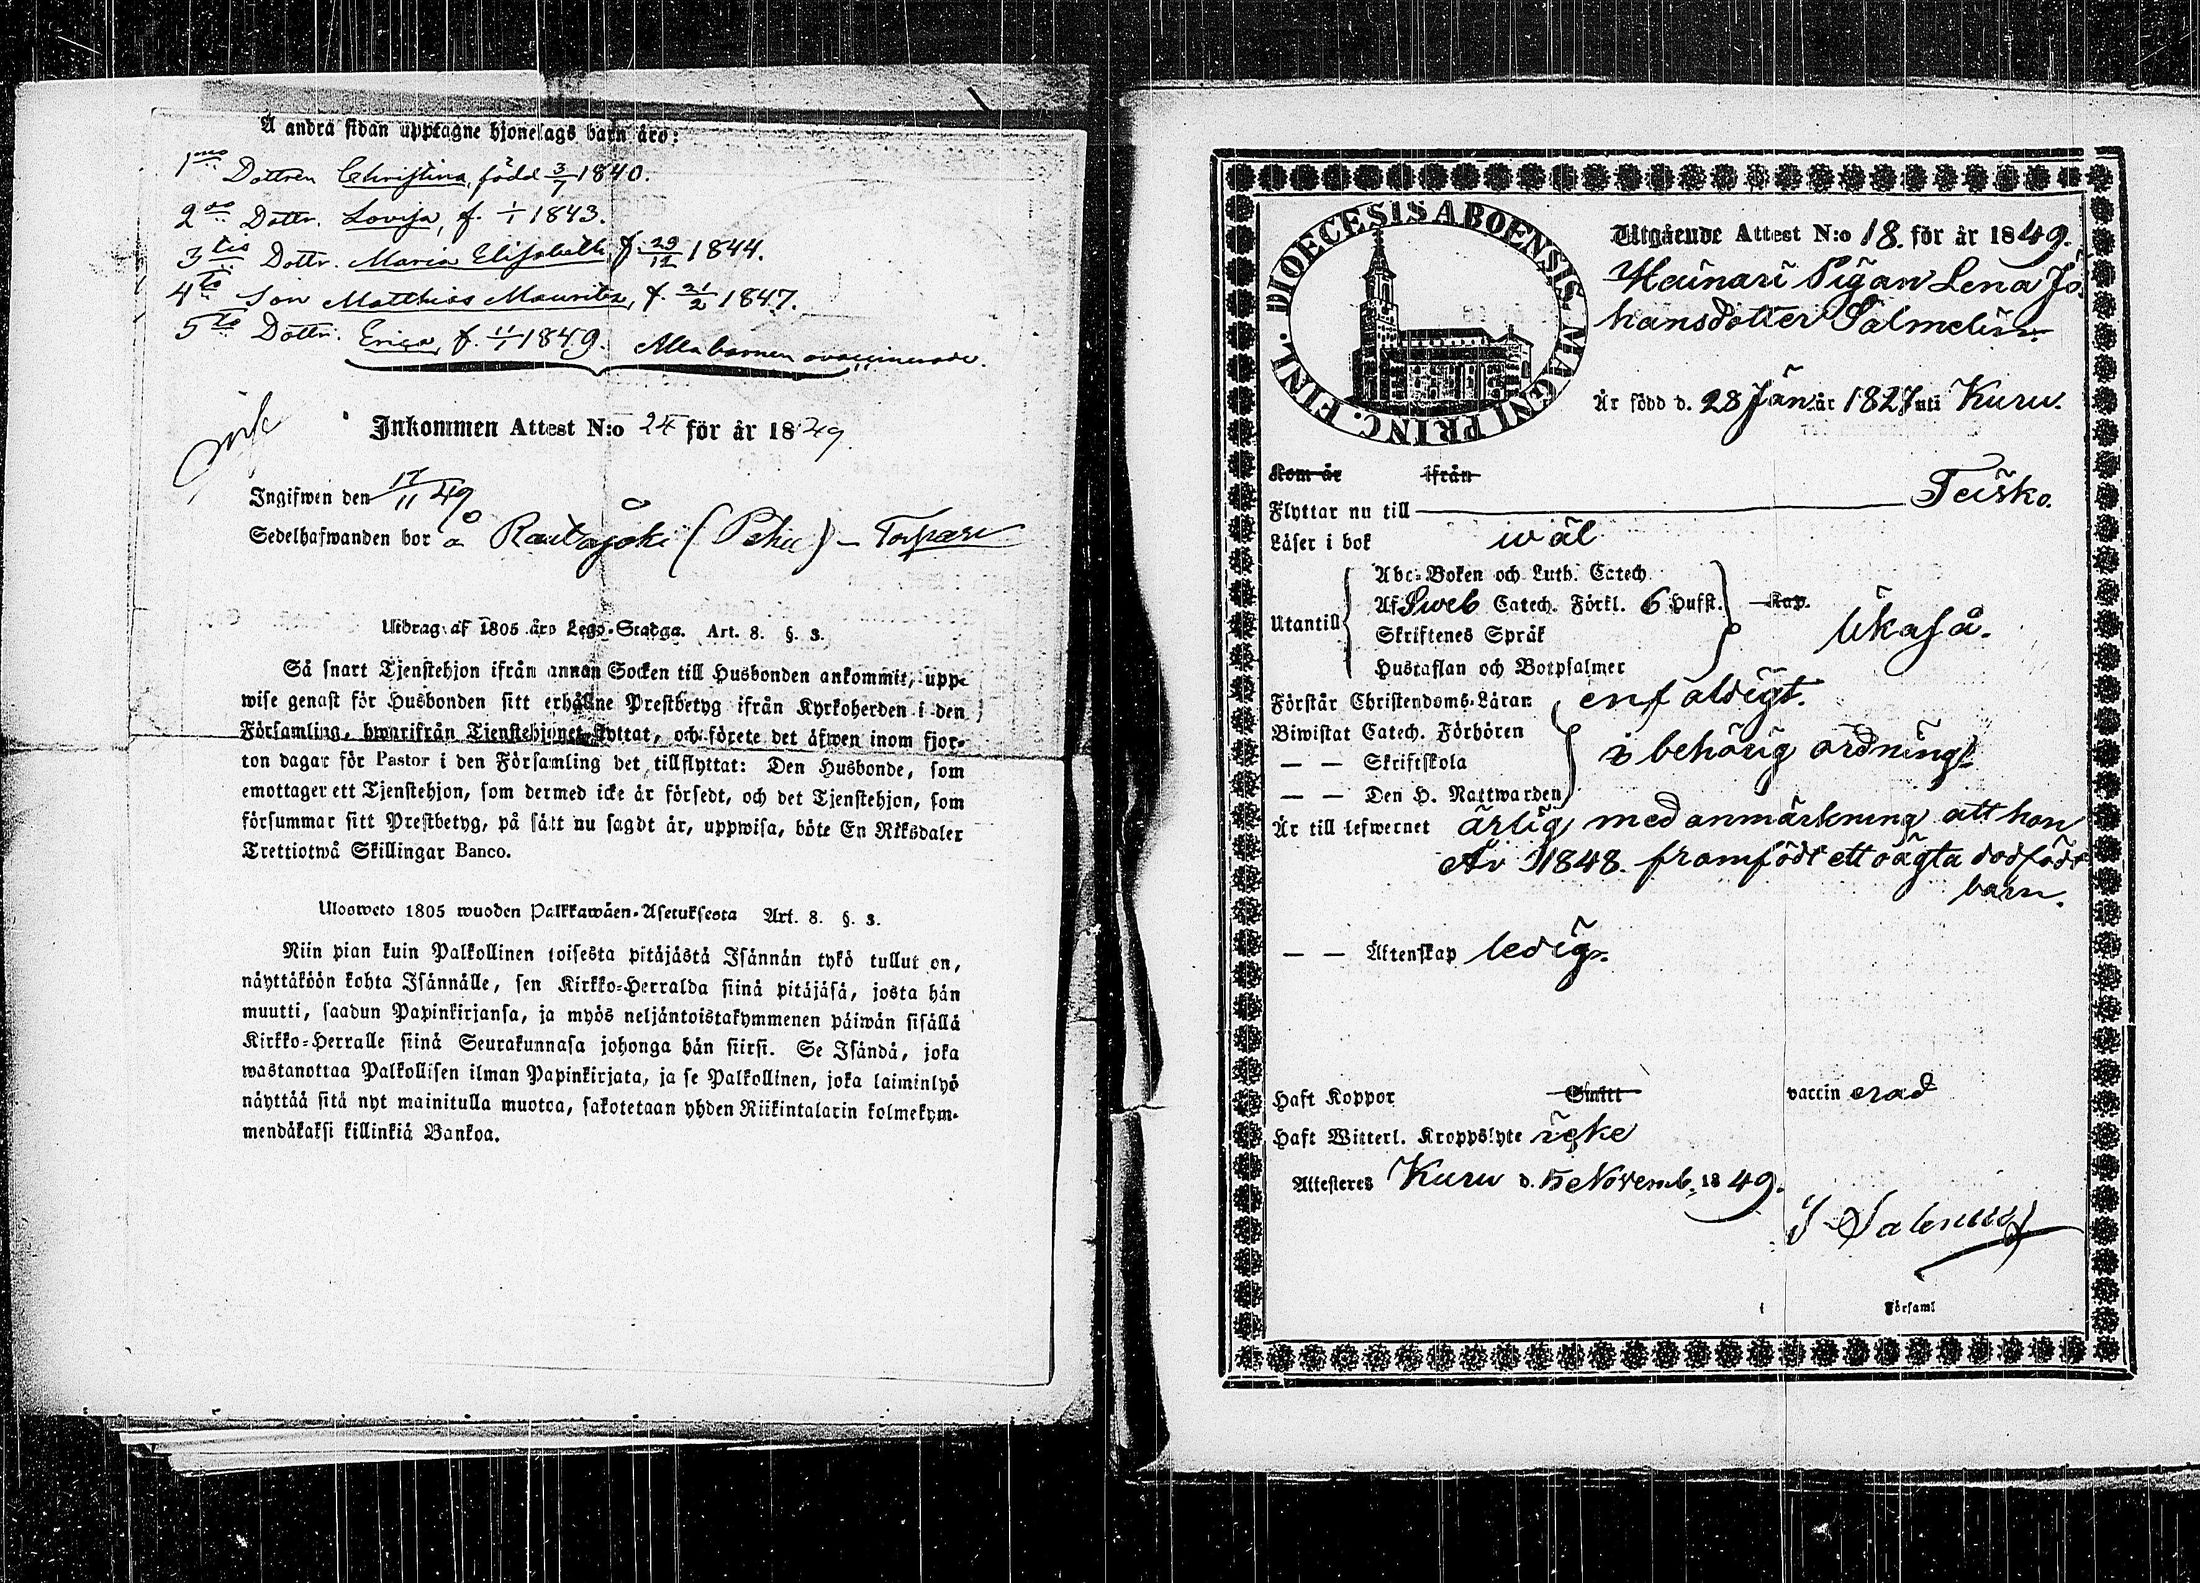 Å andra sidan upptagne hjonelags barn äro:
1mo Dottren Christina, född 3/7 1840.
2do Dottr. Lovisa, f. 1/1 1843.
3tio Dottr. Maria Elisabeth f. 29/12 1844.
4to Son Matthias Mauritz, f. 21/2 1847.
5to Dottr. Erica, f. 11/1 1849. Alla barnen ovaccinerade.
Inkommen Attest N:o 24 för år 1849
Ingifwen den 17/11 49
Sedelhafwanden bor å Rautajoki (Pehu) – Torpare
Utdrag af 1805 års Lego-Stadga. Art. 8. §. 3.
Så snart Tjenstehjon ifrån annan Socken till Husbonden ankommit, upp-
wise genast för Husbonden sitt erhållne Prestbetyg ifrån Kyrkoherden i den
Församling, hwarifrån Tjenstehjonet flyttat, och förete det äfwen inom fjor-
ton dagar för Pastor i den Församling det tillflyttat: Den Husbonde, som
emottager ett Tjenstehjon, som dermed icke är försedt, och det Tjenstehjon, som
försummar sitt Prestbetyg, på sätt nu sagdt är, uppwisa, böte En Riksdaler
Trettiotwå Skillingar Banco.
Ulosweto 1805 wuoden Palkkawäen-Asetuksesta Art. 8. §. 3.
Niin pian kuin Palkollinen toisesta pitäjästä Isännän tykö tullut on,
näyttäköön kohta Isännälle, sen Kirkko-Herralda siinä pitäjäsä, josta hän
muutti, saadun Papinkirjansa, ja myös neljäntoistakymmenen päiwän sisällä
Kirkko-Herralle siinä Seurakunnasa johonga hän siirsi. Se Isändä, joka
wastanottaa Palkollisen ilman Papinkirjata, ja se Palkollinen, joka laiminlyö
näyttää sitä nyt mainitulla muotoa, sakotetaan yhden Riikintalarin kolmekym-
mendäkaksi killinkiä Bankoa.
DIOECESIS ABOENSIS. MAGNI PRINC. FINL.
Utgående Attest N:o 18. för år 1849.
Heinari Pigan Lena Jo-
hansdotter Salmelin
Är född d. 28 Jan. år 1827 uti Kuru.
Kom år ifrån
Flyttar nu till Teisko.
Läser i bok wäl
Utantill
Abc-Boken och Luth. Catech.
Af Sweb Catech. Förkl. 6 Hufst. Kap.
Skriftenes Språk
Hustaflan och Botpsalmer
likaså.
Förstår Christendoms-Läran enfaldigt.
Biwistat Catech. Förhören
— — Skriftskola
— — Den H. Nattwarden
i behörig ordning
Är till lefwernet ärlig med anmärkning att hon
År 1848. framfödt ett oägta dödfödt
barn.
— — Äktenskap ledig.
Haft Koppor Smitt vaccin erad
Haft Witterl. Kroppslyte icke
Attesteres Kuru d. 5 Novemb. 1849.
Församl